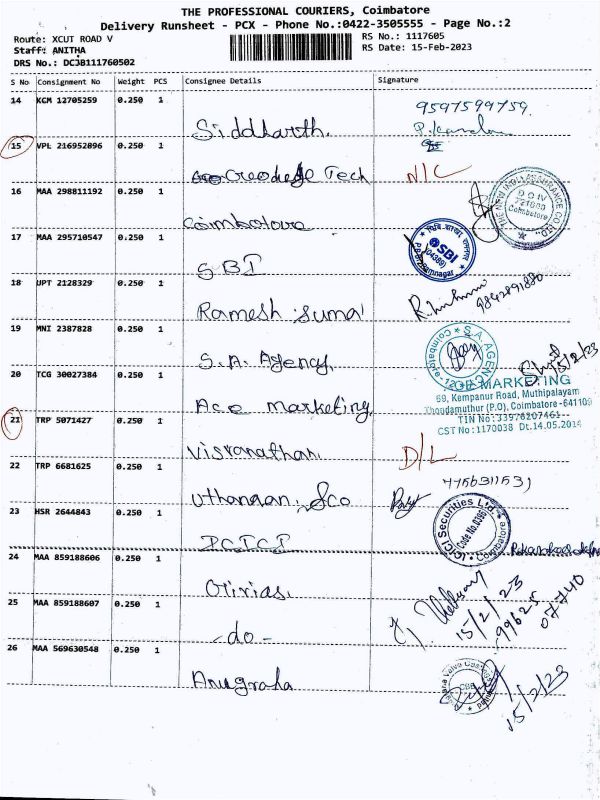 THE PROFESSIONAL COURIERS, Coimbatore
Delivery Runsheet - PCX - Phone No.:0422-3505555 - Page No.:2
Route: XCUT ROAD V
RS No.: 1117605
Staff: ANITHA
RS Date: 15-Feb-2023
DRS No.: DCJB111760502
S No Consignment No Weight PCS Consignee Details Signature
14 KCM 12705259 0.250 1
Siddharth. 9597599759
15 VPL 216952896 0.250 1
Tech N/C
16 MAA 298811192 0.250 1
Coimbatore
THE NEW INDIA ASSURANCE CO. LTD.
D O IV
721600
Coimbatore
17 MAA 295710547 0.250 1
SBI
SBI
18 UPT 2128329 0.250 1
Ramesh Sumal
19 MNI 2387828 0.250 1
S.A. Agency
S.A. AGENCY
Coimbatore-12
15/2/23
20 TCG 30027384 0.250 1
Ace marketing
MARKETING
69, Kempanur Road, Muthipalayam
Thondamuthur (P.O), Coimbatore - 641109
TIN No : 33976207461
CST No : 1170038 Dt.14.05.2014
21 TRP 5071427 0.250 1
Visvanathan D/L
22 TRP 6681625 0.250 1
23 HSR 2644843 0.250 1
ICICI
ICICI Securities Ltd.
Coimbatore
24 MAA 859188606 0.250 1
15/2/23
99625
07740
25 MAA 859188607 0.250 1
-do-
26 MAA 569630548 0.250 1
Anugraha
15/2/23